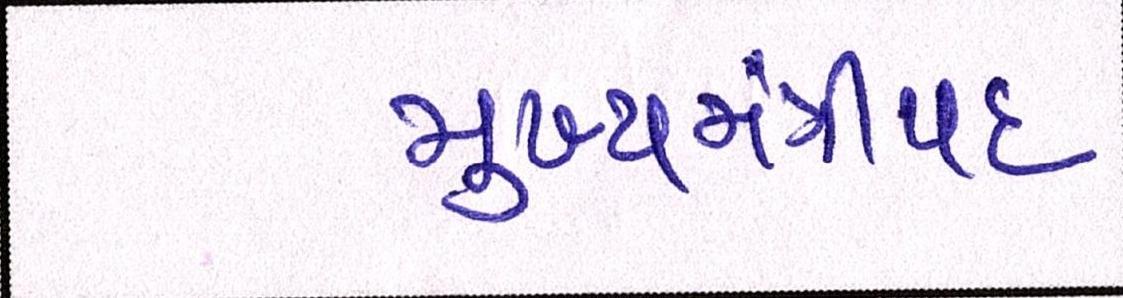 મુખ્યમંત્રીપદ